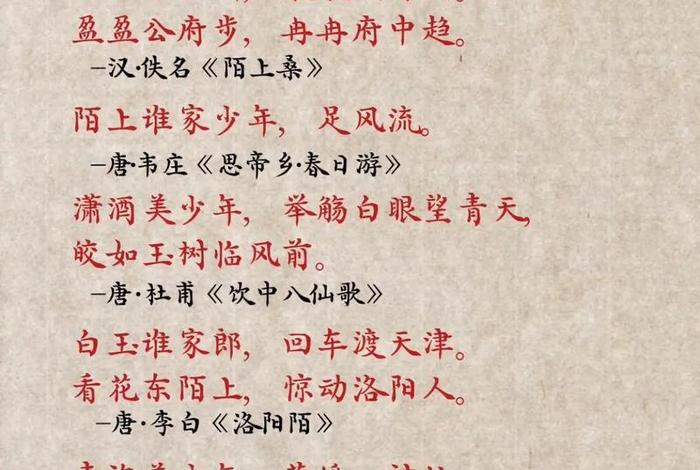 盈盈公府步，冉冉府中趋。
–汉·佚名《陌上桑》
陌上谁家少年，足风流。
–唐·韦庄《思帝乡·春日游》
潇洒美少年，举觞白眼望青天，
皎如玉树临风前。
–唐·杜甫《饮中八仙歌》
白玉谁家郎，回车渡天津。
看花东陌上，惊动洛阳人。
–唐·李白《洛阳陌》